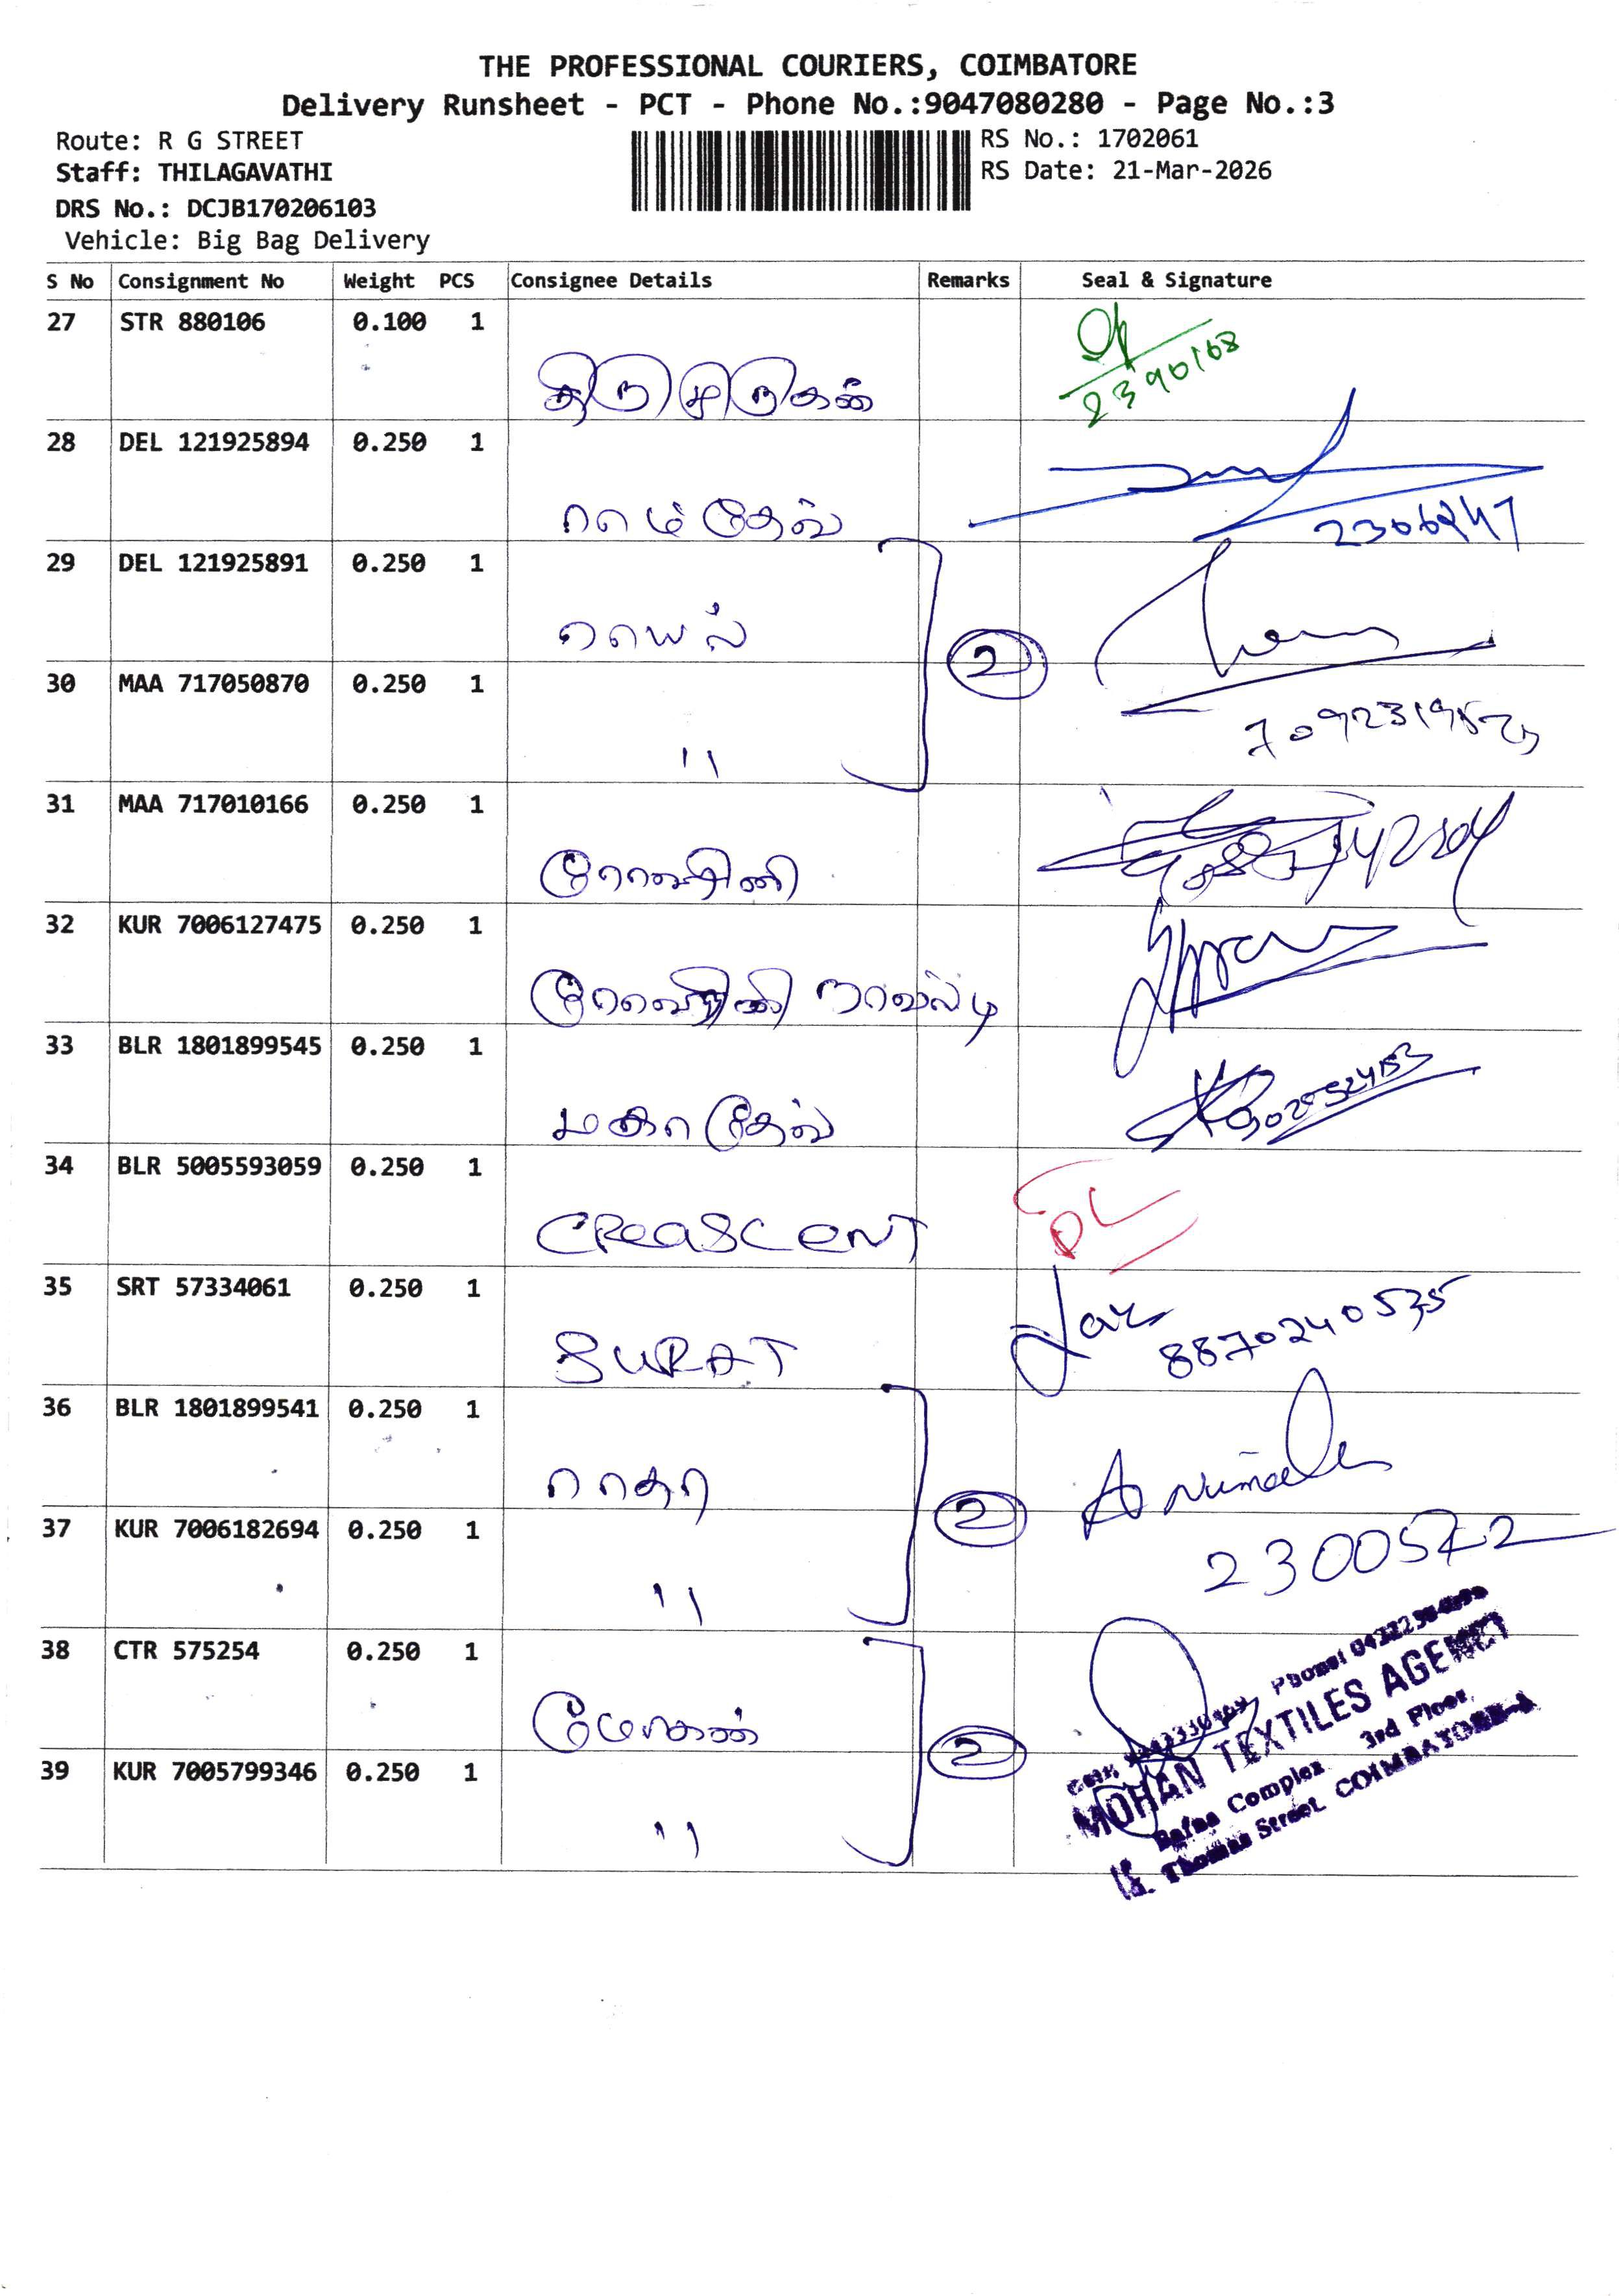 THE PROFESSIONAL COURIERS, COIMBATORE
Delivery Runsheet - PCT - Phone No.:9047080280 - Page No.:3
Route: R G STREET
RS No.: 1702061
Staff: THILAGAVATHI
RS Date: 21-Mar-2026
DRS No.: DCJB170206103
Vehicle: Big Bag Delivery
S No Consignment No Weight PCS Consignee Details Remarks Seal & Signature
27 STR 880106 0.100 1
திருமுருகன் 2390168
28 DEL 121925894 0.250 1
ராம்தேவ்
29 DEL 121925891 0.250 1
2
30 MAA 717050870 0.250 1
"
31 MAA 717010166 0.250 1
ரோஷினி
32 KUR 7006127475 0.250 1
33 BLR 1801899545 0.250 1
மகாதேவ்
34 BLR 5005593059 0.250 1
CREASCENT
35 SRT 57334061 0.250 1
SURAT 8870240535
36 BLR 1801899541 0.250 1
ராதா
2
37 KUR 7006182694 0.250 1
2300572
"
38 CTR 575254 0.250 1
மோகன்
2
39 KUR 7005799346 0.250 1
"
MOHAN TEXTILES AGENCY
Complex 3rd Floor
Thomas Street, COIMBATORE-1